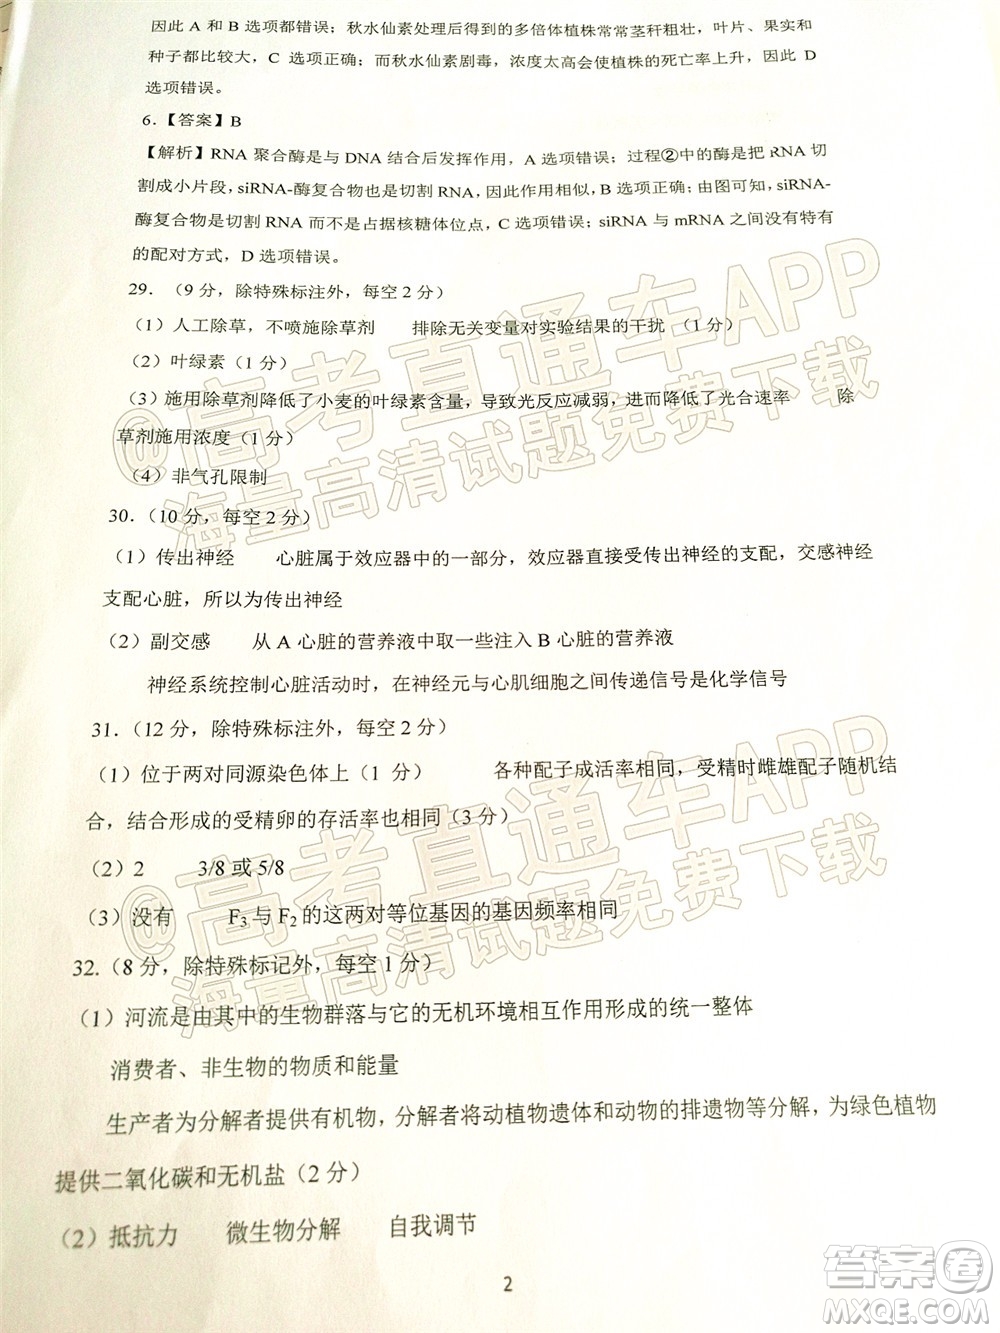 因此 A 和 B 选项都错误；秋水仙素处理后得到的多倍体植株常常茎秆粗壮，叶片、果实和
种子都比较大，C 选项正确；而秋水仙素剧毒，浓度太高会使植株的死亡率上升，因此 D
选项错误。
6.【答案】B
【解析】RNA 聚合酶是与 DNA 结合后发挥作用，A 选项错误；过程②中的酶是把 RNA 切
割成小片段，siRNA-酶复合物也是切割 RNA，因此作用相似，B 选项正确；由图可知，siRNA-
酶复合物是切割 RNA 而不是占据核糖体位点，C 选项错误；siRNA 与 mRNA 之间没有特有
的配对方式，D 选项错误。
29.（9 分，除特殊标注外，每空 2 分）
（1）人工除草，不喷施除草剂 排除无关变量对实验结果的干扰（1 分）
（2）叶绿素（1 分）
（3）施用除草剂降低了小麦的叶绿素含量，导致光反应减弱，进而降低了光合速率 除
草剂施用浓度（1 分）
（4）非气孔限制
30.（10 分，每空 2 分）
（1）传出神经 心脏属于效应器中的一部分，效应器直接受传出神经的支配，交感神经
支配心脏，所以为传出神经
（2）副交感 从 A 心脏的营养液中取一些注入 B 心脏的营养液
神经系统控制心脏活动时，在神经元与心肌细胞之间传递信号是化学信号
31.（12 分，除特殊标注外，每空 2 分）
（1）位于两对同源染色体上（1 分） 各种配子成活率相同，受精时雌雄配子随机结
合，结合形成的受精卵的存活率也相同（3 分）
（2）2 3/8 或 5/8
（3）没有 F3 与 F2 的这两对等位基因的基因频率相同
32.（8 分，除特殊标记外，每空 1 分）
（1）河流是由其中的生物群落与它的无机环境相互作用形成的统一整体
消费者、非生物的物质和能量
生产者为分解者提供有机物，分解者将动植物遗体和动物的排遗物等分解，为绿色植物
提供二氧化碳和无机盐（2 分）
（2）抵抗力 微生物分解 自我调节
2
@高考直通车APP
海量高清试题免费下载
@高考直通车APP
海量高清试题免费下载
答案卷
MXQE.COM